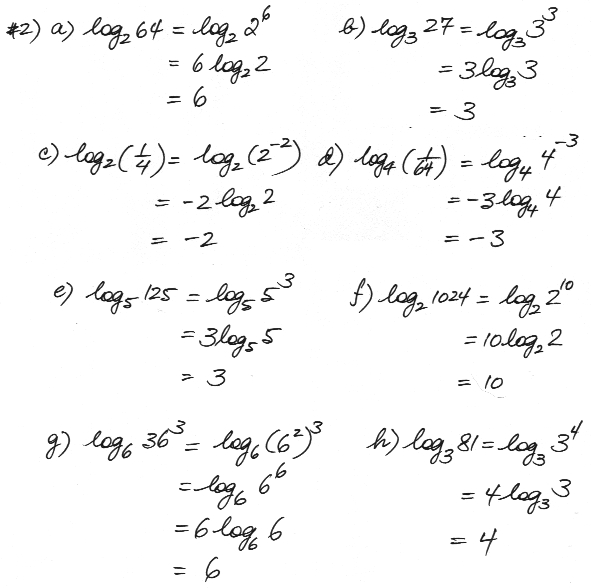 #2) a) log₂64 = log₂2⁶
= 6 log₂2
= 6
b) log₃27 = log₃3³
= 3log₃3
= 3
c) log₂(1/4) = log₂(2⁻²)
= -2 log₂2
= -2
d) log₄(1/64) = log₄4⁻³
= -3log₄4
= -3
e) log₅125 = log₅5³
= 3log₅5
= 3
f) log₂1024 = log₂2¹⁰
= 10log₂2
= 10
g) log₆36³ = log₆(6²)³
= log₆6⁶
= 6log₆6
= 6
h) log₃81 = log₃3⁴
= 4log₃3
= 4